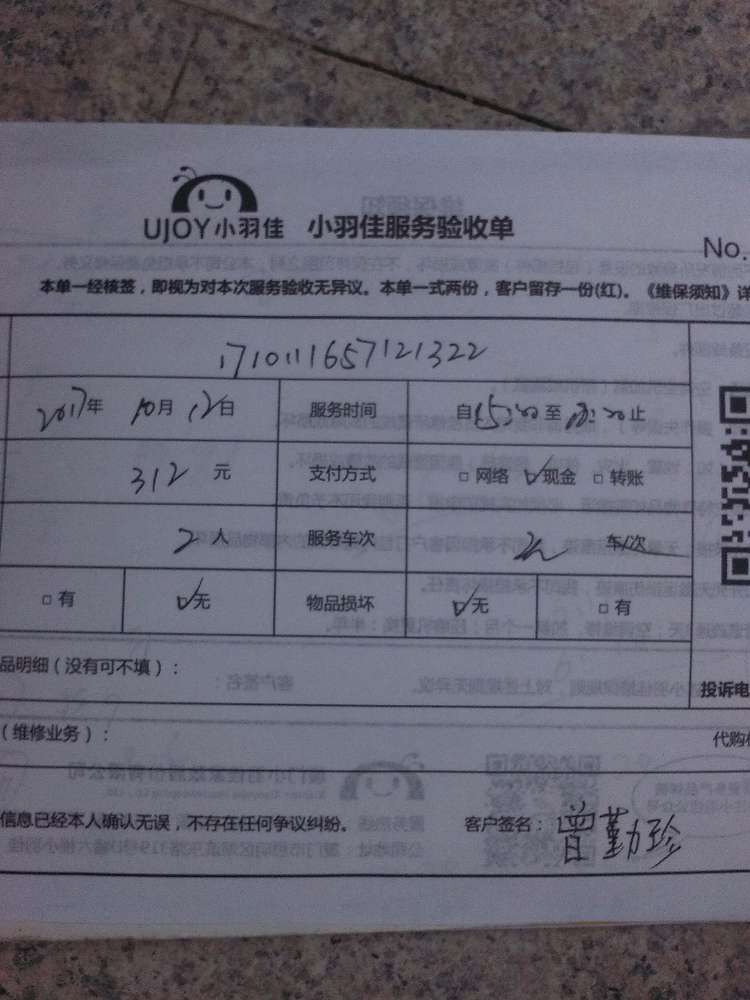 UJOY小羽佳 小羽佳服务验收单
No.
本单一经核签，即视为对本次服务验收无异议。本单一式两份，客户留存一份(红)。《维保须知》详
1710111657121322
2017年 10月 12日 服务时间 自15:00至 止
312 元 支付方式 □网络 ☑现金 □转账
2 人 服务车次 车/次
□有 ☑无 物品损坏 ☑无 □有
品明细（没有可不填）：
投诉电
（维修业务）：
代购
信息已经本人确认无误，不存在任何争议纠纷。 客户签名：曾勤珍